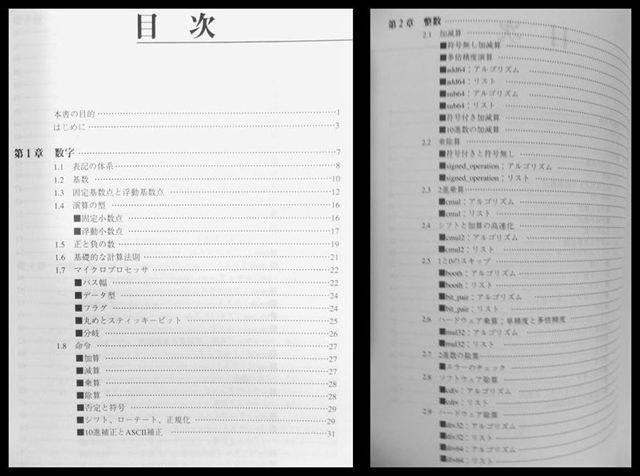 目 次
本書の目的 1
はじめに 3
第1章 数字 7
1.1 表記の体系 8
1.2 基数 10
1.3 固定基数点と浮動基数点 12
1.4 演算の型 16
■固定小数点 16
■浮動小数点 17
1.5 正と負の数 19
1.6 基礎的な計算法則 21
1.7 マイクロプロセッサ 22
■バス幅 22
■データ型 24
■フラグ 24
■丸めとスティッキービット 25
■分岐 26
1.8 命令 27
■加算 27
■減算 27
■乗算 28
■除算 28
■否定と符号 29
■シフト、ローテート、正規化 29
■10進補正とASCII補正 31
第2章 整数
2.1 加減算
■符号無し加減算
■多倍精度演算
■add64：アルゴリズム
■add64：リスト
■sub64：アルゴリズム
■sub64：リスト
■符号付き加減算
■10進数の加減算
2.2 乗除算
■符号付きと符号無し
■signed_operation：アルゴリズム
■signed_operation：リスト
2.3 2進乗算
■cmul：アルゴリズム
■cmul：リスト
2.4 シフトと加算の高速化
■cmul2：アルゴリズム
■cmul2：リスト
2.5 1と0のスキップ
■booth：アルゴリズム
■booth：リスト
■bit_pair：アルゴリズム
■bit_pair：リスト
2.6 ハードウェア乗算：単精度と多倍精度
■mul32：アルゴリズム
■mul32：リスト
2.7 2進数の除算
■エラーのチェック
2.8 ソフトウェア除算
■cdiv：アルゴリズム
■cdiv：リスト
2.9 ハードウェア除算
■div32：アルゴリズム
■div32：リスト
■div64：アルゴリズム
■div64：リスト